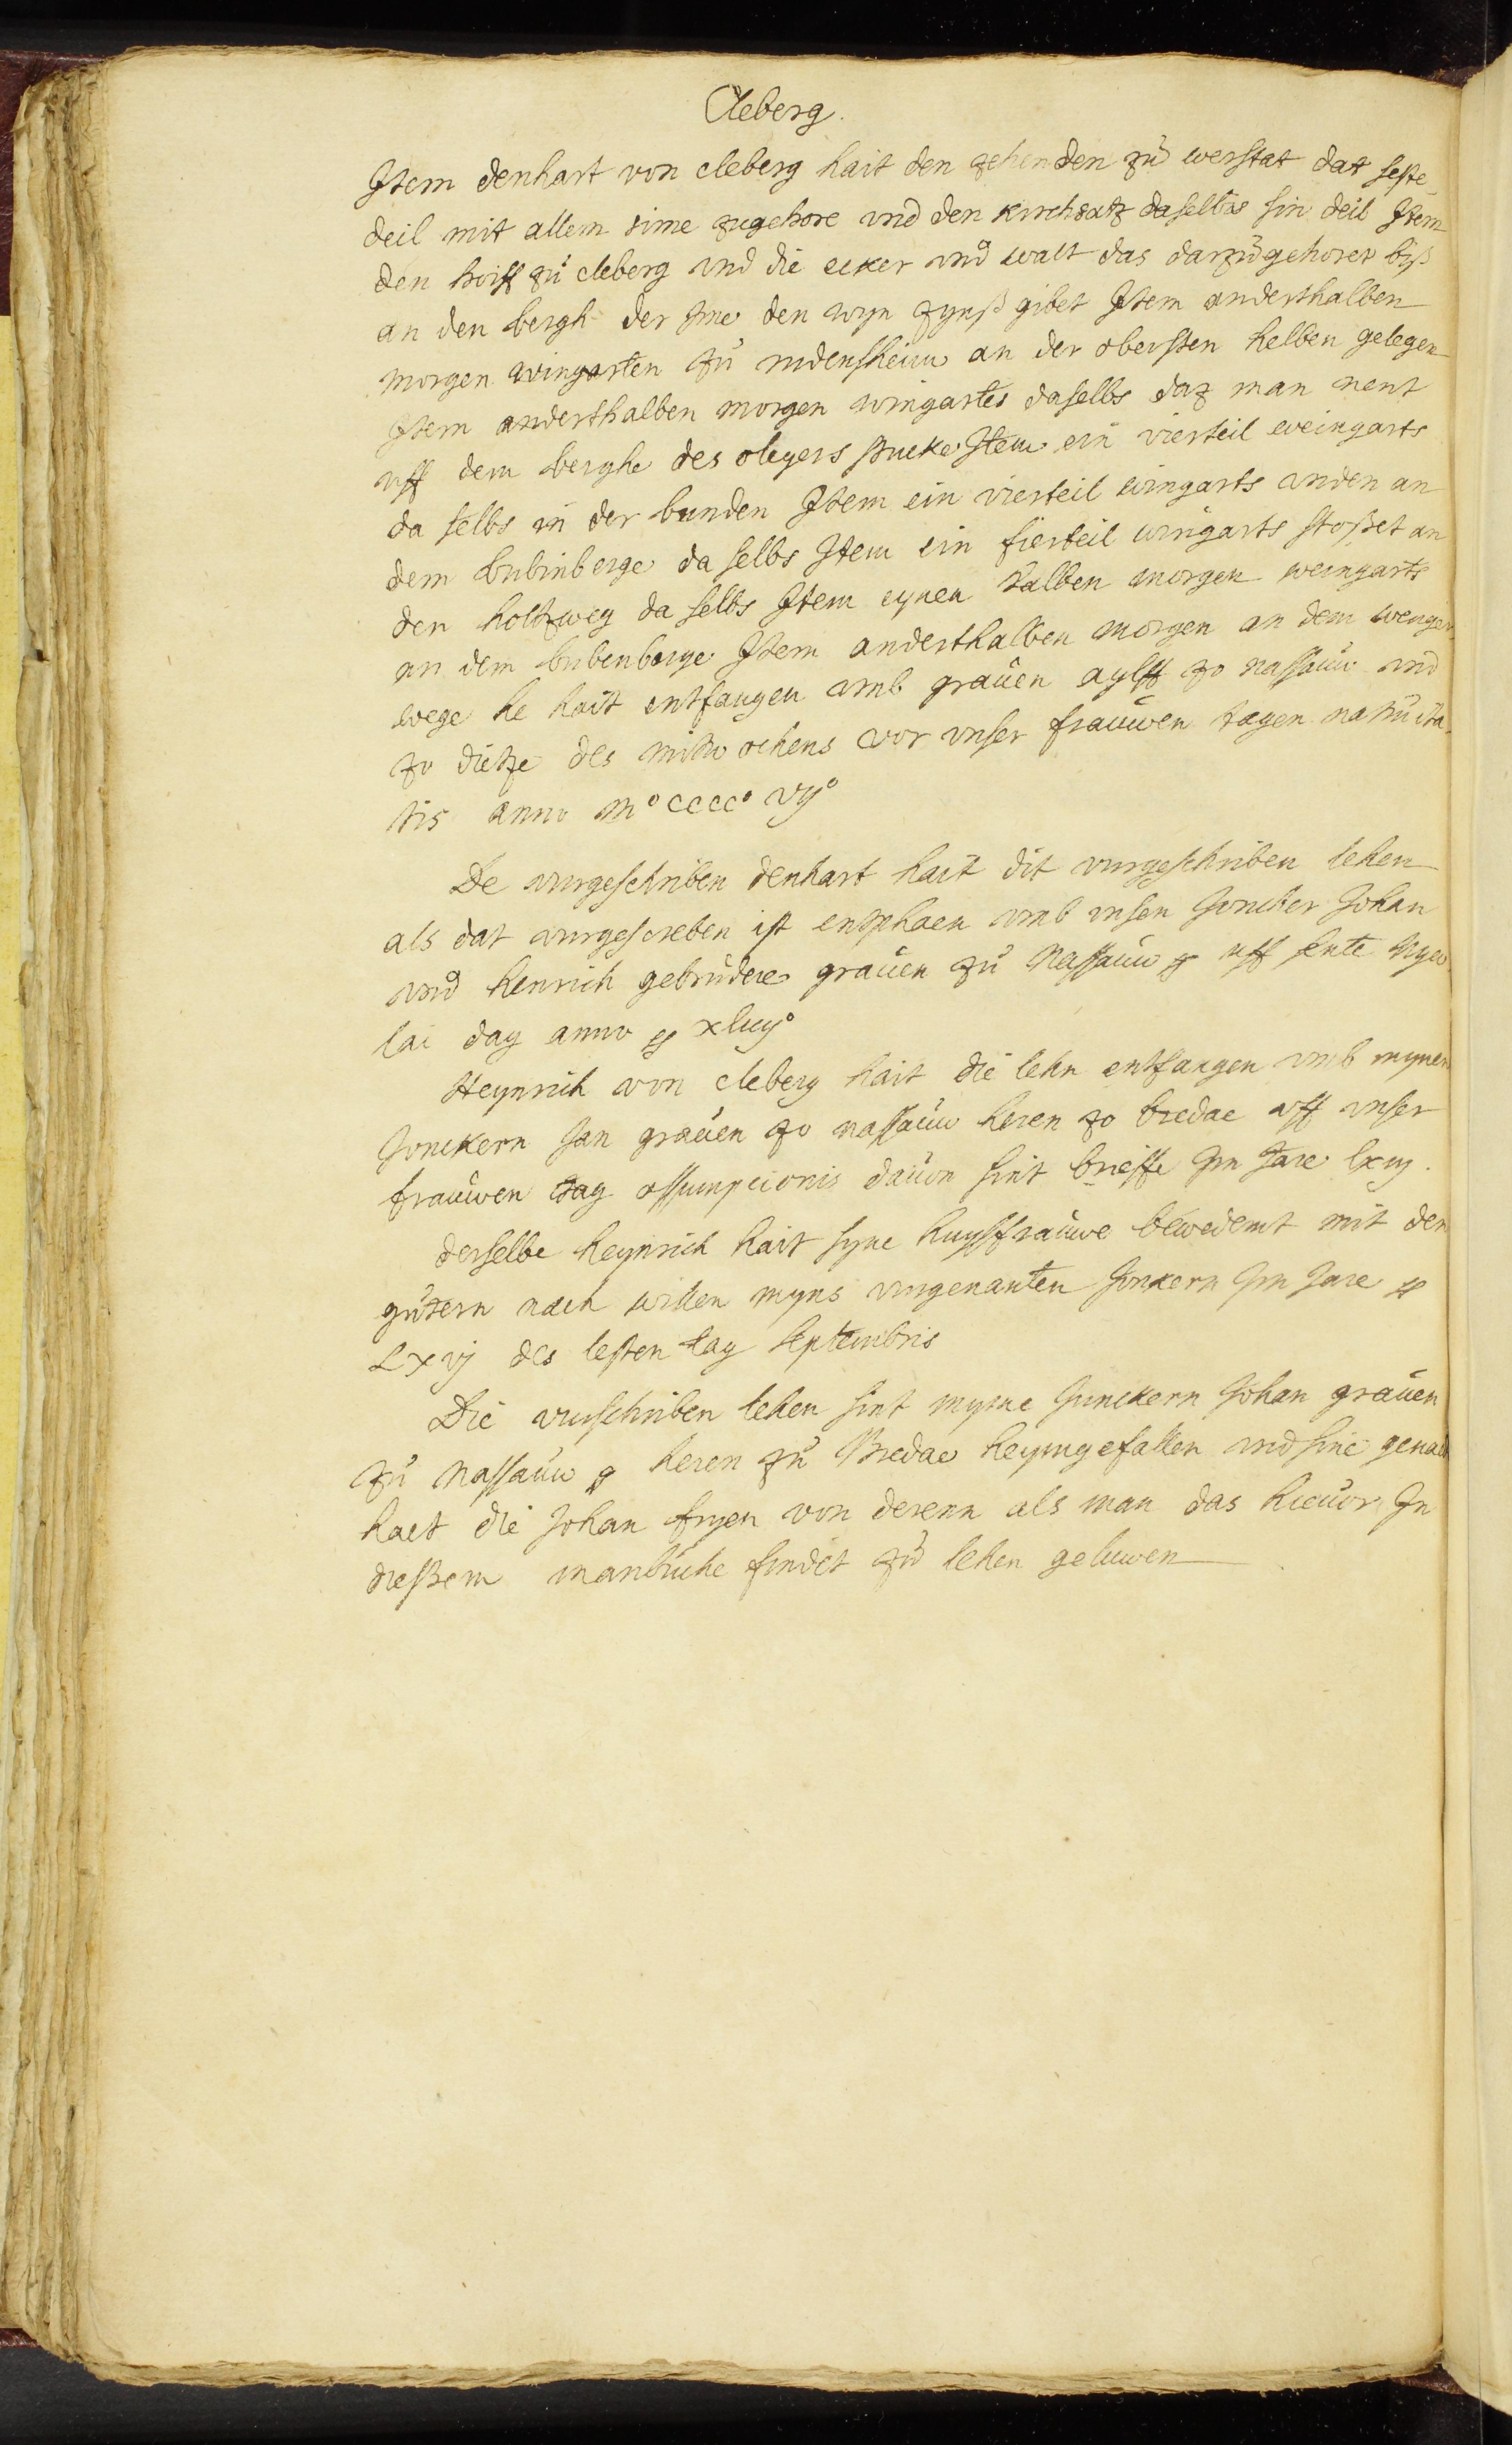 Cleberg.
Item denhart von cleberg hait den zehenden zů werstat dat seste
deil mit allem sime zugehore vnd den kirchsatz daselbs sin deil Item
den hoiff zů cleberg vnd die ecker vnd walt das darzůgehoret byß
an den bergh der Ime den wyn zynß gibet Item anderthalben
morgen wingarten zů rudensheim an der obersten helben gelegen
Item anderthalben morgen wingartes daselbs daz man nent
vff dem berghe des olegers stucke Item ein vierteil weingarts
da selbs in der bunden Item ein vierteil wingarts vnden an
dem bubinberge da selbs Item ein fierteil wingarts stoßet an
den holtzweg da selbs Item eynen halben morgen weingarts
an dem bubenberge Item anderthalben morgen an dem wenger
wege he hait entfangen vmb graůen aylff zo nassaůw vnd
zo dietze des mitwochens vor vnser fraůwen tagen natiuita
tis anno m° cccc° vij°
De vurgeschriben denhart hait dit vurgeschriben lehen
als dat vurgescreben ist entphaen vmb vnsen Joncker Johan
vnd henrich gebrůdere graůen zů Nassaůw vff sente Nyco
lai dag anno xluij°
Heynrich von cleberg hait die lehn entfangen vmb mynen
Jonckern Jan graůen zo nassaůw heren zo bredae vff vnser
fraůwen tag assumpcionis daůon sint brieffe Im Jare lxiij.
derselbe heynrich hait syne huyßfraůwe bewedemt mit den
gůtern nach willen myns vurgenanten Jonkern Im Jare
Lxvj des lesten tag septembris
Die vurschriben lehen sint myme Junckern Johan graůen
zů Nassaůw heren zů Bredae heymgefallen vnd sine genade
haet die Johan fryen von derenn als man das hieůor In
dießem manbůche findet zů lehen geluwen